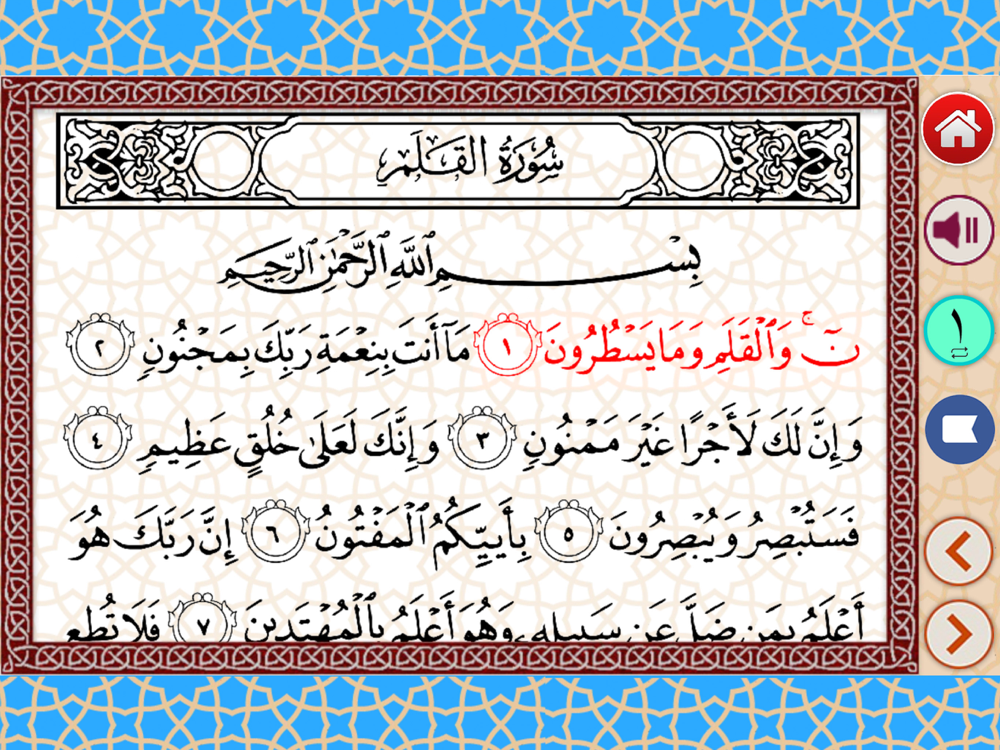 سُورَةُ القَلَمِ
بِسْمِ ٱللَّهِ ٱلرَّحْمَٰنِ ٱلرَّحِيمِ
نٓۚ وَٱلْقَلَمِ وَمَا يَسْطُرُونَ ١ مَآ أَنتَ بِنِعْمَةِ رَبِّكَ بِمَجْنُونٍ ٢
وَإِنَّ لَكَ لَأَجْرًا غَيْرَ مَمْنُونٍ ٣ وَإِنَّكَ لَعَلَىٰ خُلُقٍ عَظِيمٍ ٤
فَسَتُبْصِرُ وَيُبْصِرُونَ ٥ بِأَييِّكُمُ ٱلْمَفْتُونُ ٦ إِنَّ رَبَّكَ هُوَ
أَعْلَمُ بِمَن ضَلَّ عَن سَبِيلِهِۦ وَهُوَ أَعْلَمُ بِٱلْمُهْتَدِينَ ٧ فَلَا تُطِعِ
١